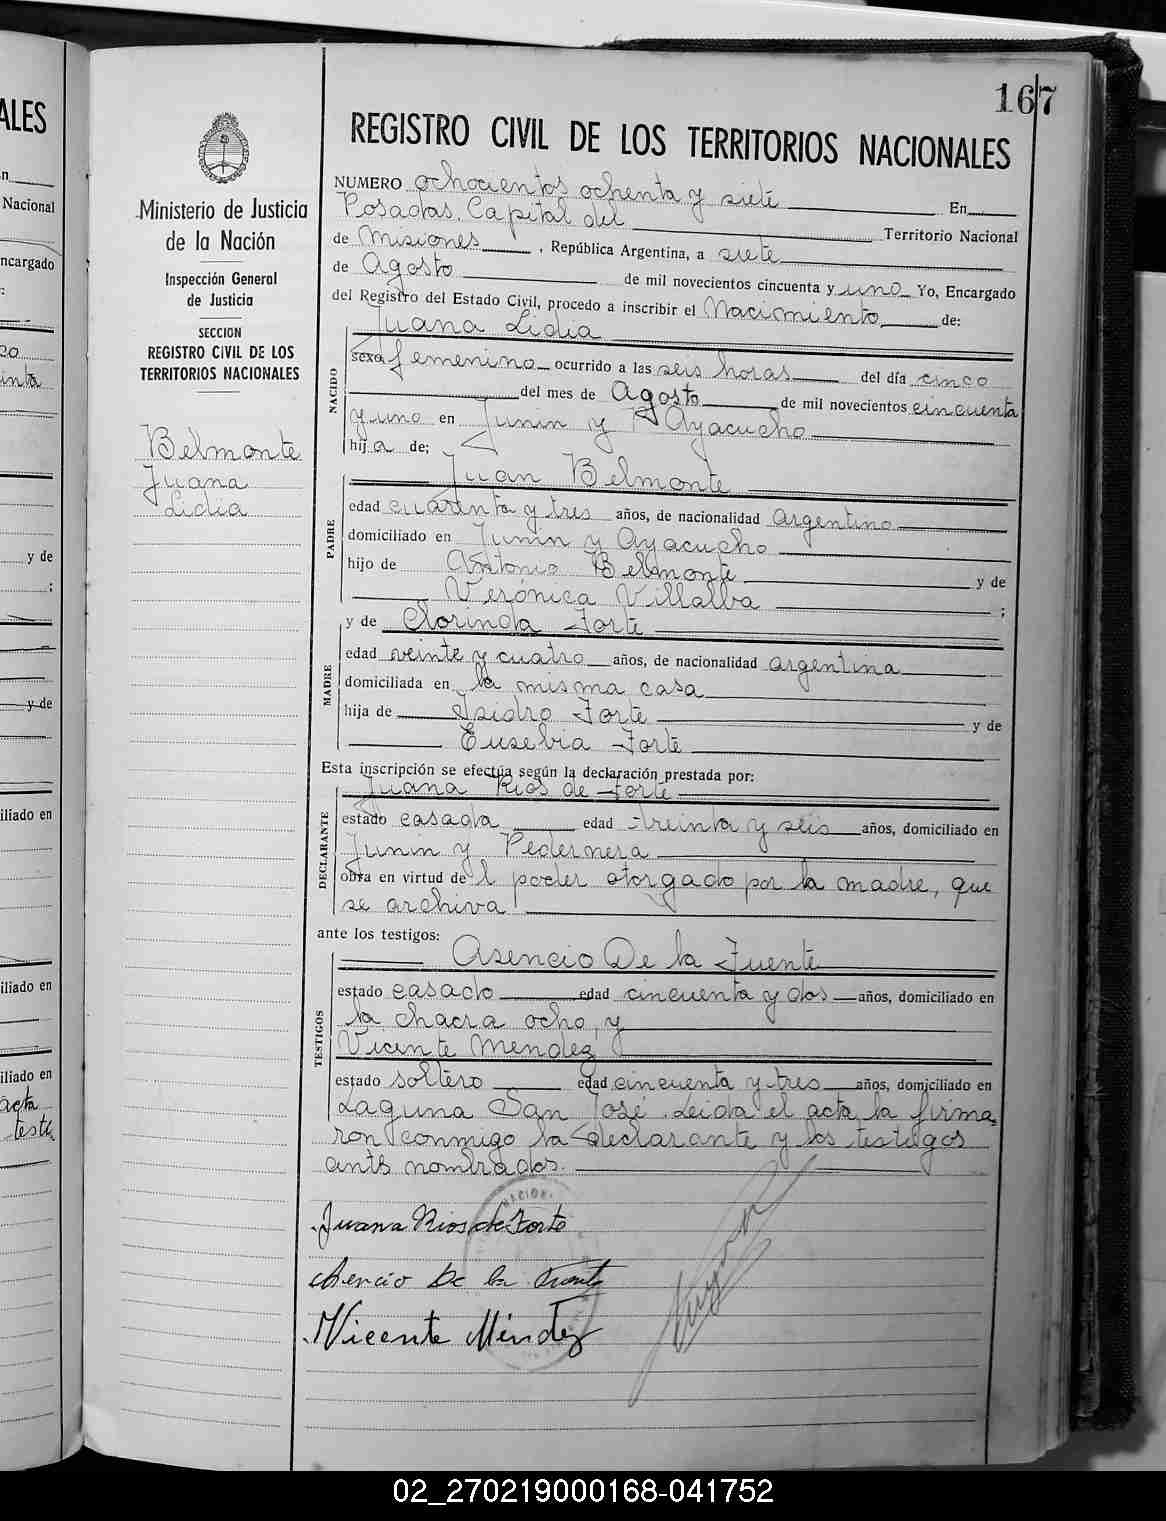 167
REGISTRO CIVIL DE LOS TERRITORIOS NACIONALES
Ministerio de Justicia
de la Nación
Inspección General
de Justicia
SECCION
REGISTRO CIVIL DE LOS
TERRITORIOS NACIONALES
Belmonte
Juana
Lidia
NUMERO ochocientos ochenta y siete En
Posadas, Capital del Territorio Nacional
de Misiones, República Argentina, a siete
de Agosto de mil novecientos cincuenta y uno Yo, Encargado
del Registro del Estado Civil, procedo a inscribir el Nacimiento de:
Juana Lidia
NACIDO
sexo femenino ocurrido a las seis horas del día cinco
del mes de Agosto de mil novecientos cincuenta
y uno en Junin y Ayacucho
hija de:
Juan Belmonte
PADRE
edad cuarenta y tres años, de nacionalidad argentino
domiciliado en Junin y Ayacucho
hijo de Antonio Belmonte y de
Verónica Villalba ;
y de Clorinda Forte
MADRE
edad veinte y cuatro años, de nacionalidad argentina
domiciliada en la misma casa
hija de Isidro Forte y de
Eusebia Forte
Esta inscripción se efectúa según la declaración prestada por:
Juana Rios de Forte
DECLARANTE
estado casada edad treinta y seis años, domiciliado en
Junin y Pedernera
obra en virtud de l poder otorgado por la madre, que
se archiva
ante los testigos:
Asencio De la Fuente
TESTIGOS
estado casado edad cincuenta y dos años, domiciliado en
la chacra ocho, y
Vicente Mendez
estado soltero edad cincuenta y tres años, domiciliado en
Laguna San José. Leida el acta, la firma
ron conmigo la declarante y los testigos
ants nombrados.
Juana Rios de Forte
Asencio De la Fuente
Vicente Méndez
ALES
n
Nacional
ncargado
y de
;
y de
iliado en
iliado en
iliado en
acta
testi
02_270219000168-041752